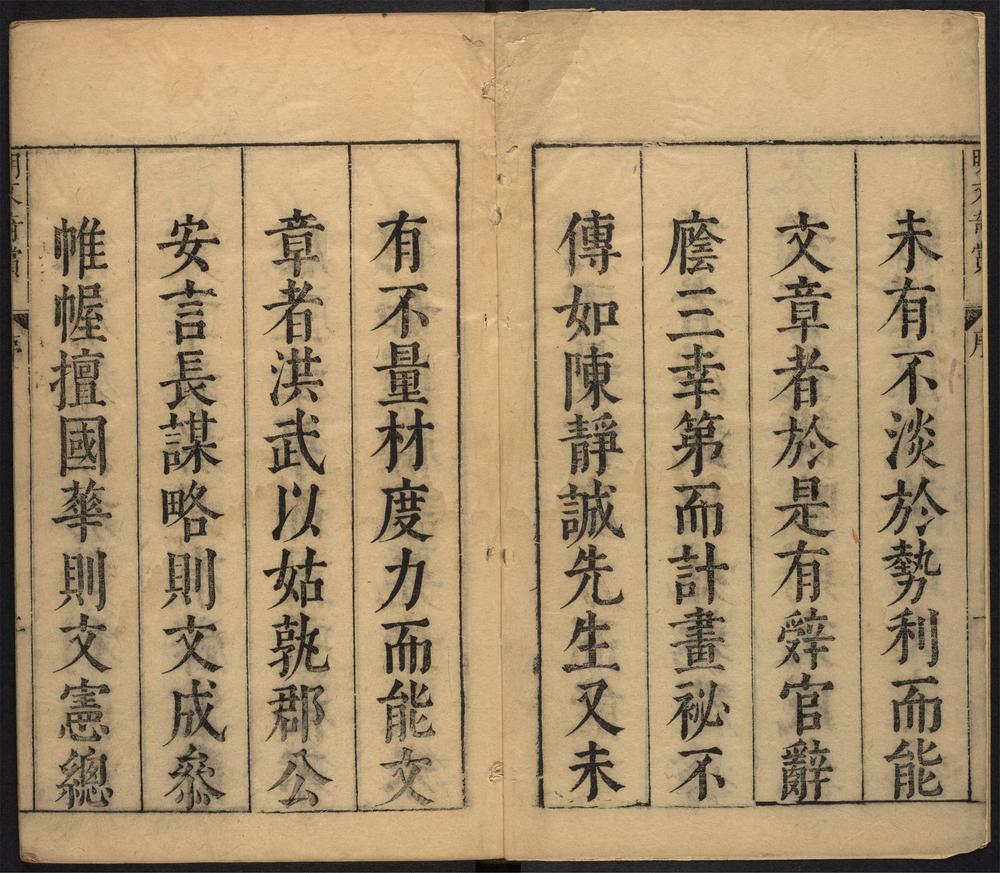 明文奇賞
序
未有不淡於勢利而能
文章者於是有辤官辭
廕三幸第而計畫祕不
傳如陳靜誠先生又未
有不量材度力而能文
章者洪武以姑孰郡公
安言長謀略則文成叅
帷幄擅國華則文憲總
明文奇賞
序